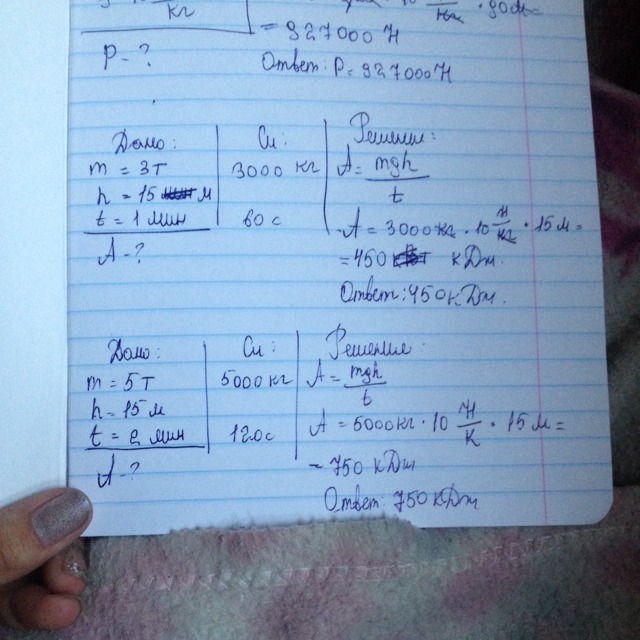 кг
= 927000 Н
P - ?
Ответ: P = 927000 Н
Дано: Си: Решение:
m = 3 т 3000 кг A = mgh / t
h = 15 м
t = 1 мин 60 с A = 3000 кг · 10 Н/кг · 15 м =
A - ? = 450 кДж
Ответ: 450 кДж.
Дано: Си: Решение:
m = 5 т 5000 кг A = mgh / t
h = 15 м
t = 2 мин 120 с A = 5000 кг · 10 Н/к · 15 м =
A - ? = 750 кДж
Ответ: 750 кДж